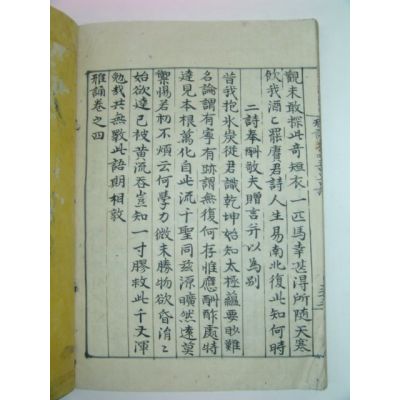 觀未敢探此奇短衣一匹馬幸甚得所隨天寒
飲我酒〻罷賡君詩人生易南北復此知何時
二詩奉酬敬夫贈言幷以爲別
昔我抱氷炭從君識乾坤始知太極蘊要眇難
名論謂有寧有跡謂無復何存惟應酬酢處特
達見本根萬化自此流千聖同兹源曠然遠莫
禦惕若初不煩云何學力微未勝物欲昏涓〻
始欲達已被黄流吞豈知一寸膠救此千丈渾
勉哉共無斁此語期相敦
雅誦卷之四